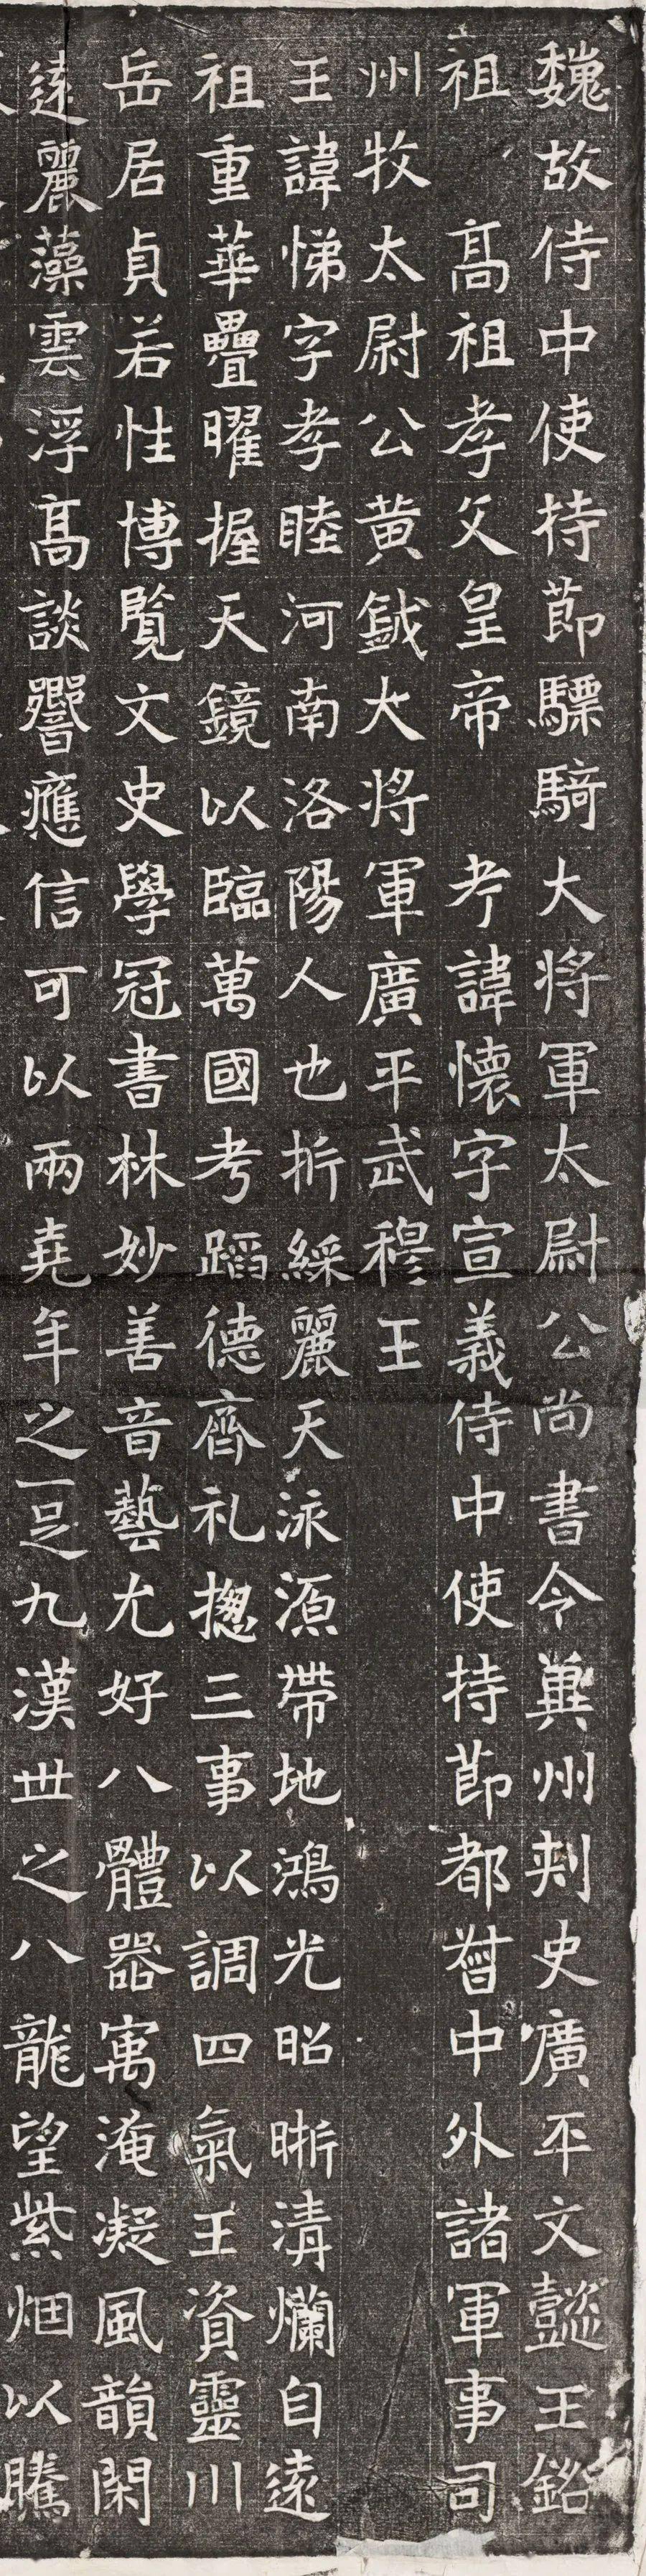 魏故侍中使持莭驃騎大將軍太尉公尚書令兾州刾史廣平文懿王銘
祖　高祖孝父皇帝　考諱懷字宣義侍中使持莭都督中外諸軍事司
州牧太尉公黄鉞大將軍廣平武穆王
王諱悌字孝睦河南洛陽人也折綵麗天泳源帶地鴻光昭晰清爛自遠
祖重華疊曜握天鏡以臨萬國考蹈德齊礼揔三事以調四氣王資靈川
岳居貞若性博覧文史學冠書林妙善音藝尤好八體器㝢淹凝風韻閑
遠麗藻雲浮高談響應信可以兩堯年之一足九漢世之八龍望紫烟以騰